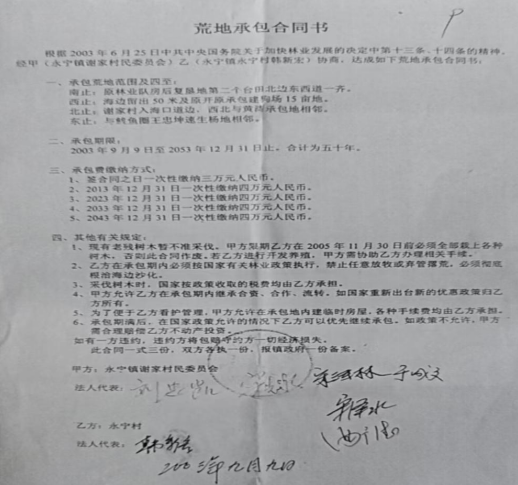 荒地承包合同书
根据2003年6月25日中共中央国务院关于加快林业发展的决定中第十三条、十四条的精神，
经甲（永宁镇谢家村民委员会）乙（永宁镇永宁村韩新宏）协商，达成如下荒地承包合同书：
一、承包荒地范围及四至：
南止：原林业队房后复垦地第二个台田北边东西道一齐。
西止：海边留出50米及原开原承包建狗场15亩地。
北止：谢家村入海口道边，西北与黄
承包地相邻。
东止：与鱿鱼圈王忠坤速生杨地相邻。
二、承包期限：
2003年9月9日至2053年12月31日止。合计为五十年。
三、承包费缴纳方式：
1、签合同之日一次性缴纳三万元人民币。
2、2013年12月31日一次性缴纳四万元人民币。
3、2023年12月31日一次性缴纳四万元人民币。
4、2033年12月31日一次性缴纳四万元人民币。
5、2043年12月31日一次性缴纳四万元人民币。
四、其他有关规定：
1、现有老残树木暂不准采伐。甲方
期乙方在2005年11月30日前必须全部栽上各种
树木，否则此合同作废。若乙方进行开发养殖，甲方需协助乙方办理相关手续。
2、乙方在承包期内必须按国家有关林业政策执行，禁止任意放牧或弃管撂荒，必须彻底
根治海边沙化。
3、采伐树木时，国家按政策收取的税费均由乙方承担。
4、甲方允许乙方在承包期内继承合资、合作、流转。如国家重新出台新的优惠政策归乙
方所有。
5、为了便于乙方看护管理，甲方允许在承包地内建临时房屋，各种手续费均由乙方承担。
6、承包期满后，在国家政策允许的情况下乙方可以优先继续承包。如政策不允许，甲方
需合理赔偿乙方不动产投资。
如有一方违约，违约方将包赔守约方一切经济损失。
此合同一式三份，双方各执一份，报镇政府一份备案。
甲方：永宁镇谢家村民委员会
法人代表：
乙方：永宁村
法人代表：韩新宏
2003年九月九日